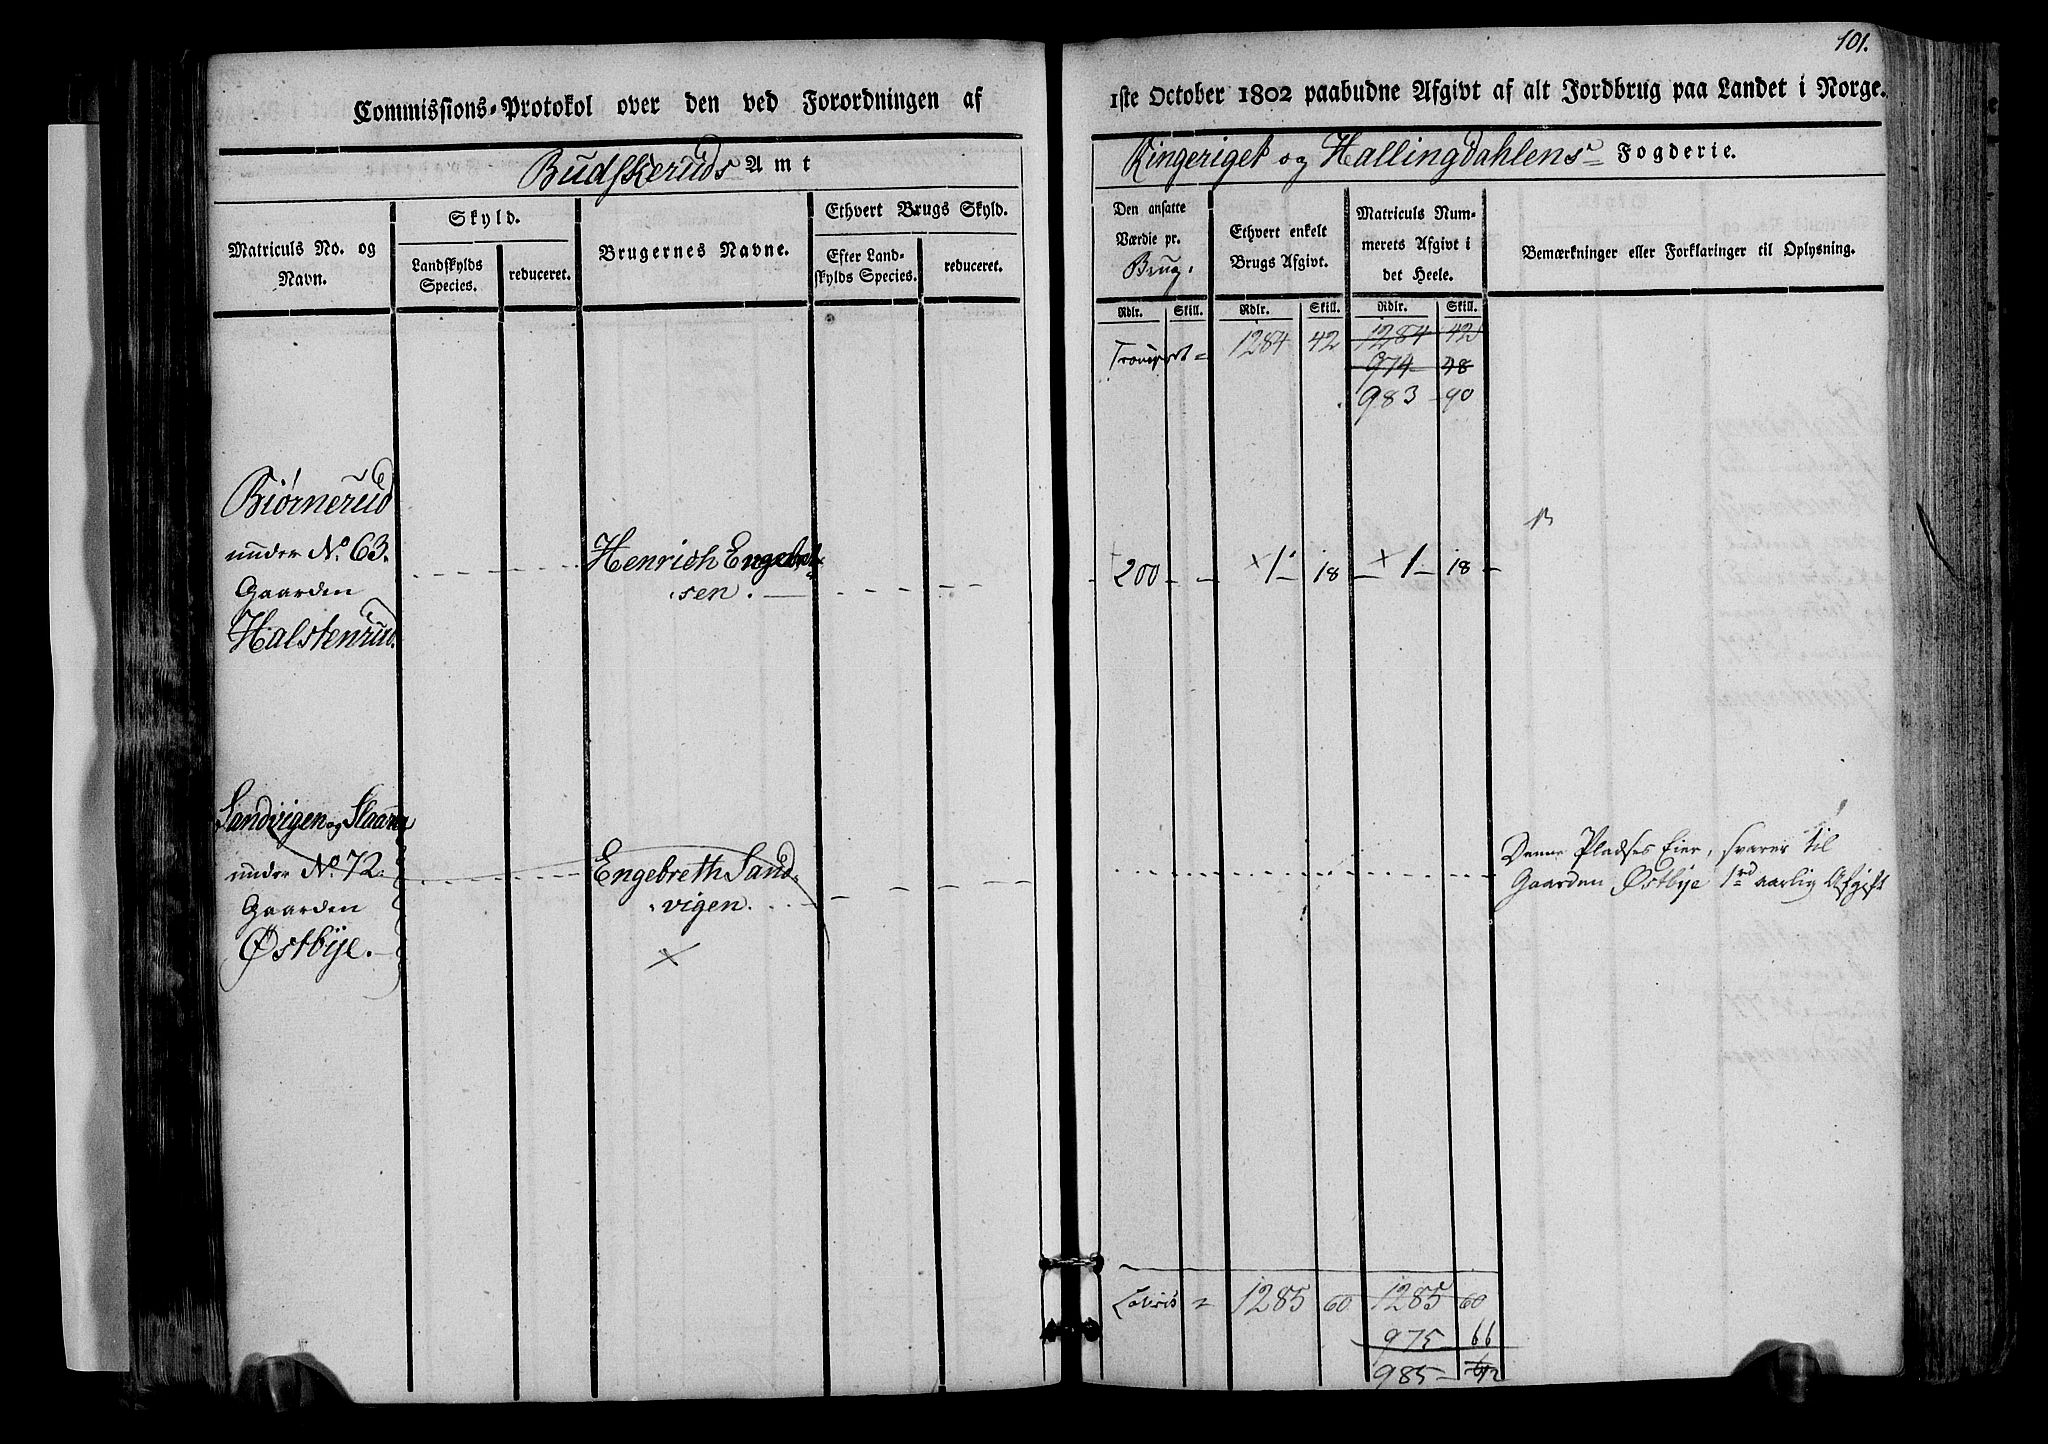 101.
Commissions-Protokol over den ved Forordningen af
1ste October 1802 paabudne Afgivt af alt Jordbrug paa Landet i Norge.
Budskeruds Amt
Ringeriget og Hallingdahlens Fogderie.
Matriculs No. og Navn.
Skyld.
Landskylds Species.
reduceret.
Brugernes Navne.
Ethvert Brugs Skyld.
Efter Land-
skylds Species.
reduceret.
Den ansatte
Værdie pr.
Brug.
Rdlr. Skill.
Ethvert enkelt
Brugs Afgivt.
Rdlr. Skill.
Matriculs Num-
merets Afgivt i
det Heele.
Rdlr. Skill.
Bemærkninger eller Forklaringer til Oplysning.
Transport = 1284 42 1284 42
974 48
983 90
Biørnerud
under No. 63.
Gaarden
Halstenrud.
Henrich Engebret-
sen.
200 - - × 1 - 18 × 1 - 18
Sandvigen og Slaaen
under No. 72.
Gaarden
Østbye.
Engebreth Sand-
vigen.
×
Denne Pladses Eier, svarer til
Gaarden Østbye 1 rd aarlig Afgift
Lateris = 1285 60 1285 60
975 66
985 12